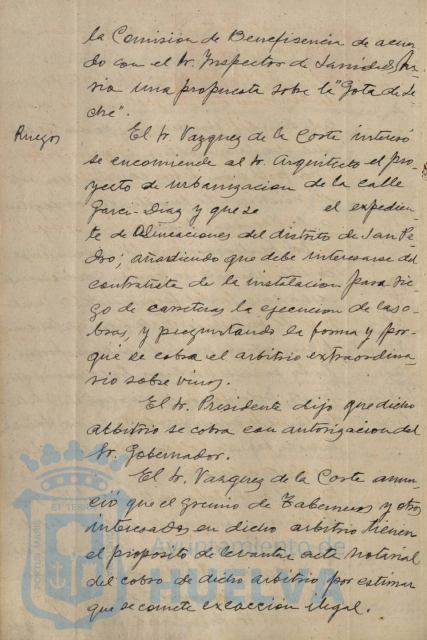 la Comision de Beneficencia de acuer-
do con el Sr. Inspector de Sanidad, ha-
ria una propuesta sobre la "Gota de Le-
che".
Ruegos
El Sr. Vazquez de la Corte interesó
se encomiende al Sr. Arquitecto el pro-
yecto de urbanizacion de la calle
Garci-Diaz y que se el expedien-
te de Alineaciones del distrito de San Pe-
dro; añadiendo que debe interesarse del
contratista de la instalacion para rie-
go de carreteras la ejecucion de las o-
bras, y preguntando la forma y por-
qué se cobra el arbitrio extraordina-
rio sobre vinos.
El Sr. Presidente dijo que dicho
arbitrio se cobra con autorizacion del
Sr. Gobernador.
El Sr. Vazquez de la Corte anun-
ció que el gremio de Taberneros y otros
interesados en dicho arbitrio tienen
el proposito de levantar acta notarial
del cobro de dicho arbitrio por estimar
que se comete exaccion ilegal.
Ayuntamiento de
HUELVA
PORTUS MARIS
ET TERRAE